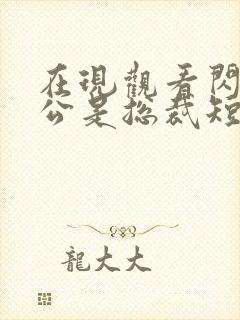 在現觀看閃
公是總裁短
龍大大